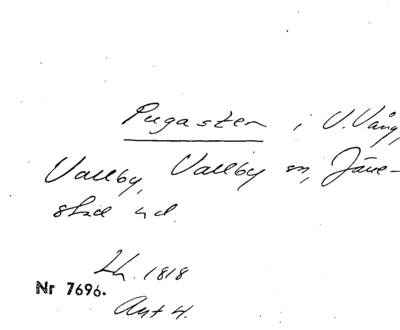 Pugasten i V. Vång,
Vallby, Vallby sn, Järre-
stad hd.
Lh. 1818
Nr 7696.
Ant 4.